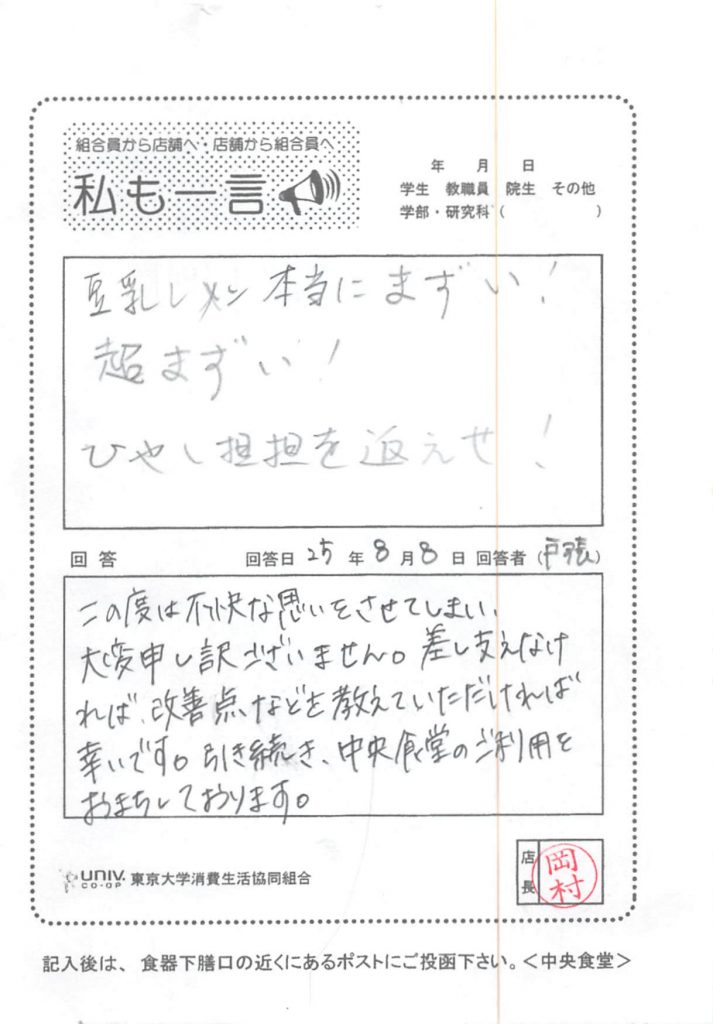 組合員から店舗へ・店舗から組合員へ
私も一言
年 月 日
学生 教職員 院生 その他
学部・研究科 ( )
豆乳レメン本当にまずい!
超まずい!
ひやし担担を返えせ!
回答 回答日 25 年 8 月 8 日 回答者 (戸張)
この度は不快な思いをさせてしまい、
大変申し訳ございません。差し支えなけ
れば、改善点などを教えていただければ
幸いです。引き続き、中央食堂のご利用を
おまちしております。
UNIV. CO-OP 東京大学消費生活協同組合
店長 岡村
記入後は、食器下膳口の近くにあるポストにご投函下さい。<中央食堂>